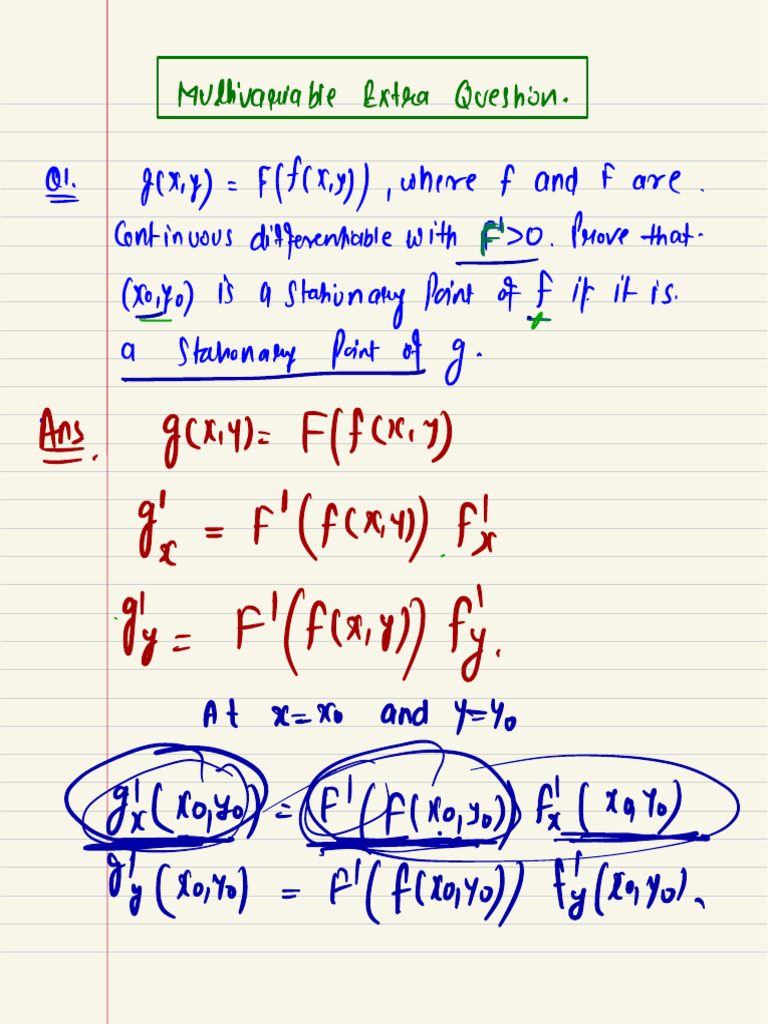 Multivariable Extra Question.
Q1. g(x,y) = F(f(x,y)), where f and F are.
Continuous differentiable with F'>0. Prove that.
(x0,y0) is a stationary Point of f if it is.
a stationary Point of g.
Ans. g(x,y) = F(f(x,y)
g'x = F'(f(x,y)) f'x
g'y = F'(f(x,y)) f'y.
At x=x0 and y=y0
g'x(x0,y0) = F'(f(x0,y0)) f'x(x0,y0)
g'y(x0,y0) = F'(f(x0,y0)) f'y(x0,y0).